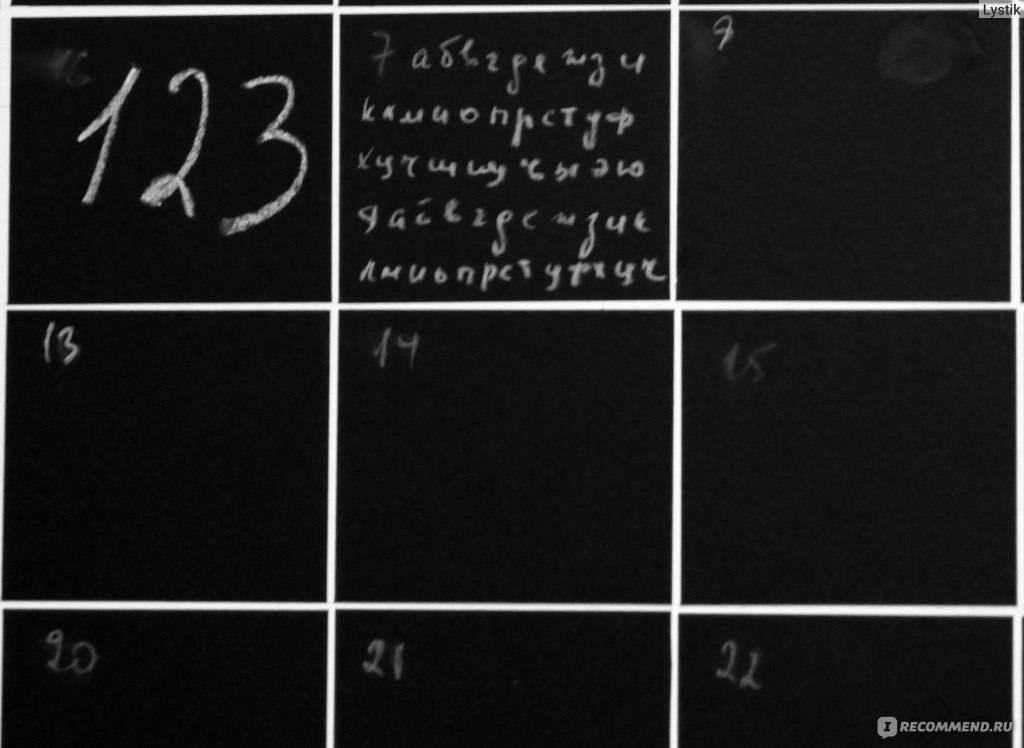 Lystik
6
123
7 абвгдежзи
клмнопрстуф
хцчшщъыэю
яабвгдежзик
лмнопрстуфхцч
9
13
14
15
20
21
22
IRECOMMEND.RU